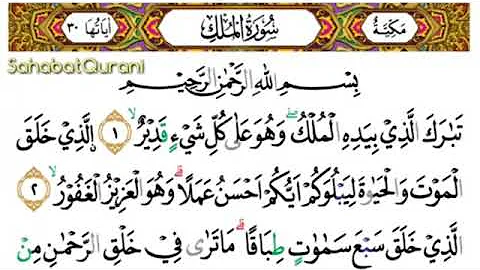 مكية سورة الملك آياتها ٣٠
SahabatQurani
بِسْمِ اللهِ الرَّحْمٰنِ الرَّحِيْمِ
تَبٰرَكَ الَّذِيْ بِيَدِهِ الْمُلْكُۖ وَهُوَ عَلٰى كُلِّ شَيْءٍ قَدِيْرٌۙ ١ الَّذِيْ خَلَقَ
الْمَوْتَ وَالْحَيٰوةَ لِيَبْلُوَكُمْ اَيُّكُمْ اَحْسَنُ عَمَلًاۗ وَهُوَ الْعَزِيْزُ الْغَفُوْرُۙ ٢
الَّذِيْ خَلَقَ سَبْعَ سَمٰوٰتٍ طِبَاقًاۗ مَا تَرٰى فِيْ خَلْقِ الرَّحْمٰنِ مِنْ